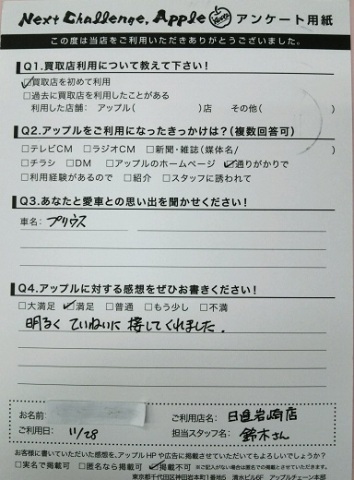 Next Challenge, Apple アンケート用紙
この度は当店をご利用いただきありがとうございました。
Q1.買取店利用について教えて下さい!
☑買取店を初めて利用
□過去に買取店を利用したことがある
利用した店舗: アップル( )店 その他( )
Q2.アップルをご利用になったきっかけは?(複数回答可)
□テレビCM □ラジオCM □新聞・雑誌(媒体名/ )
□チラシ □DM □アップルのホームページ ☑通りがかりで
□利用経験があるので □紹介 □スタッフに誘われて
Q3.あなたと愛車との思い出を聞かせください!
車名: プリウス
Q4.アップルに対する感想をぜひお書きください!
□大満足 ☑満足 □普通 □もう少し □不満
明るく ていねいに 接してくれました.
お名前 ご利用店名: 日進岩崎店
ご利用日: 11/28 担当スタッフ名: 鈴木さん
お客様に書いていただいた感想を、アップルHPや広告に掲載いたしてもよろしいでしょうか?
□実名で掲載可 □匿名なら掲載可 ☑掲載不可 ※ご記入がない場合は匿名での掲載とさせていただきます。
東京都千代田区神田岩本町1番地5 清水ビル6F アップルチェーン本部